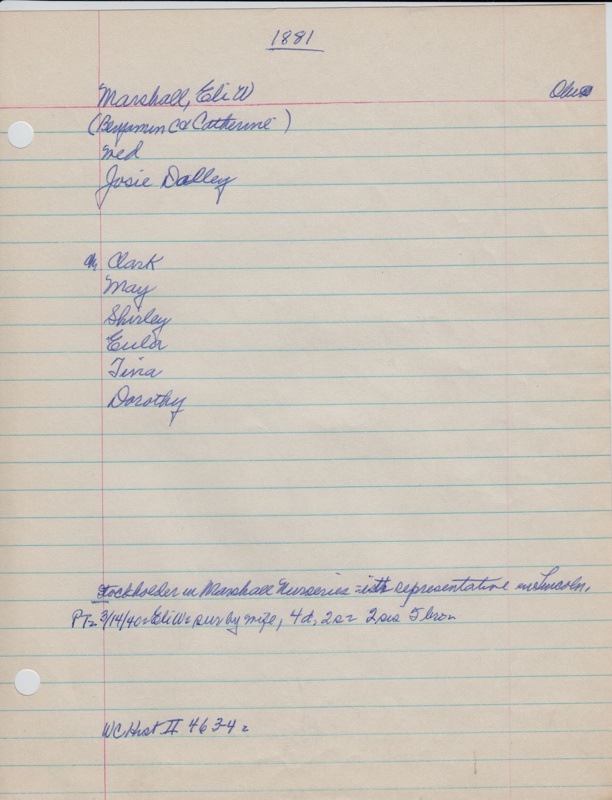 1881
Marshall, Eli W
(Benjamin C & Catherine)
med
Josie Dalley
Ch, Clark
May
Shirley
Eula
Tina
Dorothy
Stockholder in Marshall Nurseries = its representative in Lincoln.
PT= 3/14/40= Eli W= sur by wife, 4d, 2s= 2 sis 5 bro=
WC Hist II 463-4=